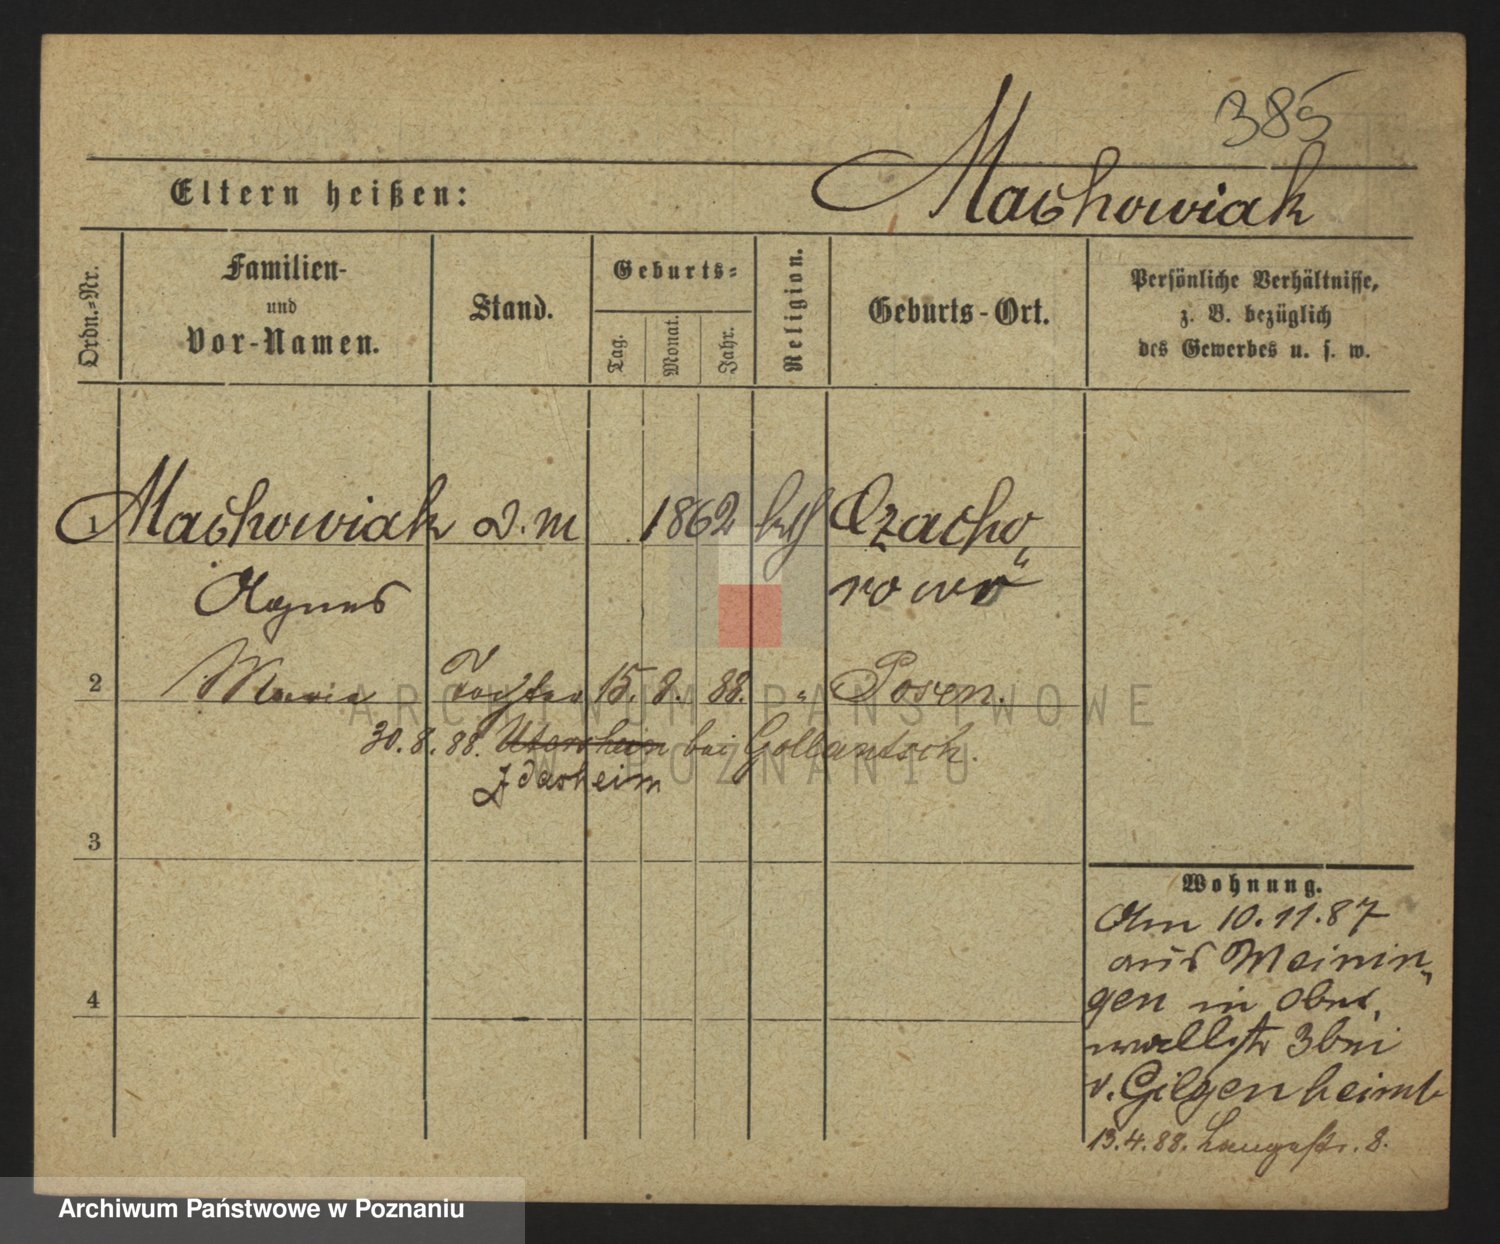 385
Eltern heißen: Machowiak
Ordn.-Nr.
Familien-
und
Vor-Namen.
Stand.
Geburts-
Tag.
Monat.
Jahr.
Religion.
Geburts-Ort.
Persönliche Verhältnisse,
z. B. bezüglich
des Gewerbes u. s. w.
1 Machowiak D.M 1862 kath Czacho„
Agnes rowo
2 Maria Tochter 15. 8. 88. " Posen.
30. 8. 88. bei Gollantsch.
Zdasheim
3
4
Wohnung.
Am 10.11.87
aus Meinin„
gen in Ober„
wallstr 3 bei
v. Gilgenheimb
13.4.88. Langestr. 8.
ARCHIWUM PAŃSTWOWE
W POZNANIU
Archiwum Państwowe w Poznaniu